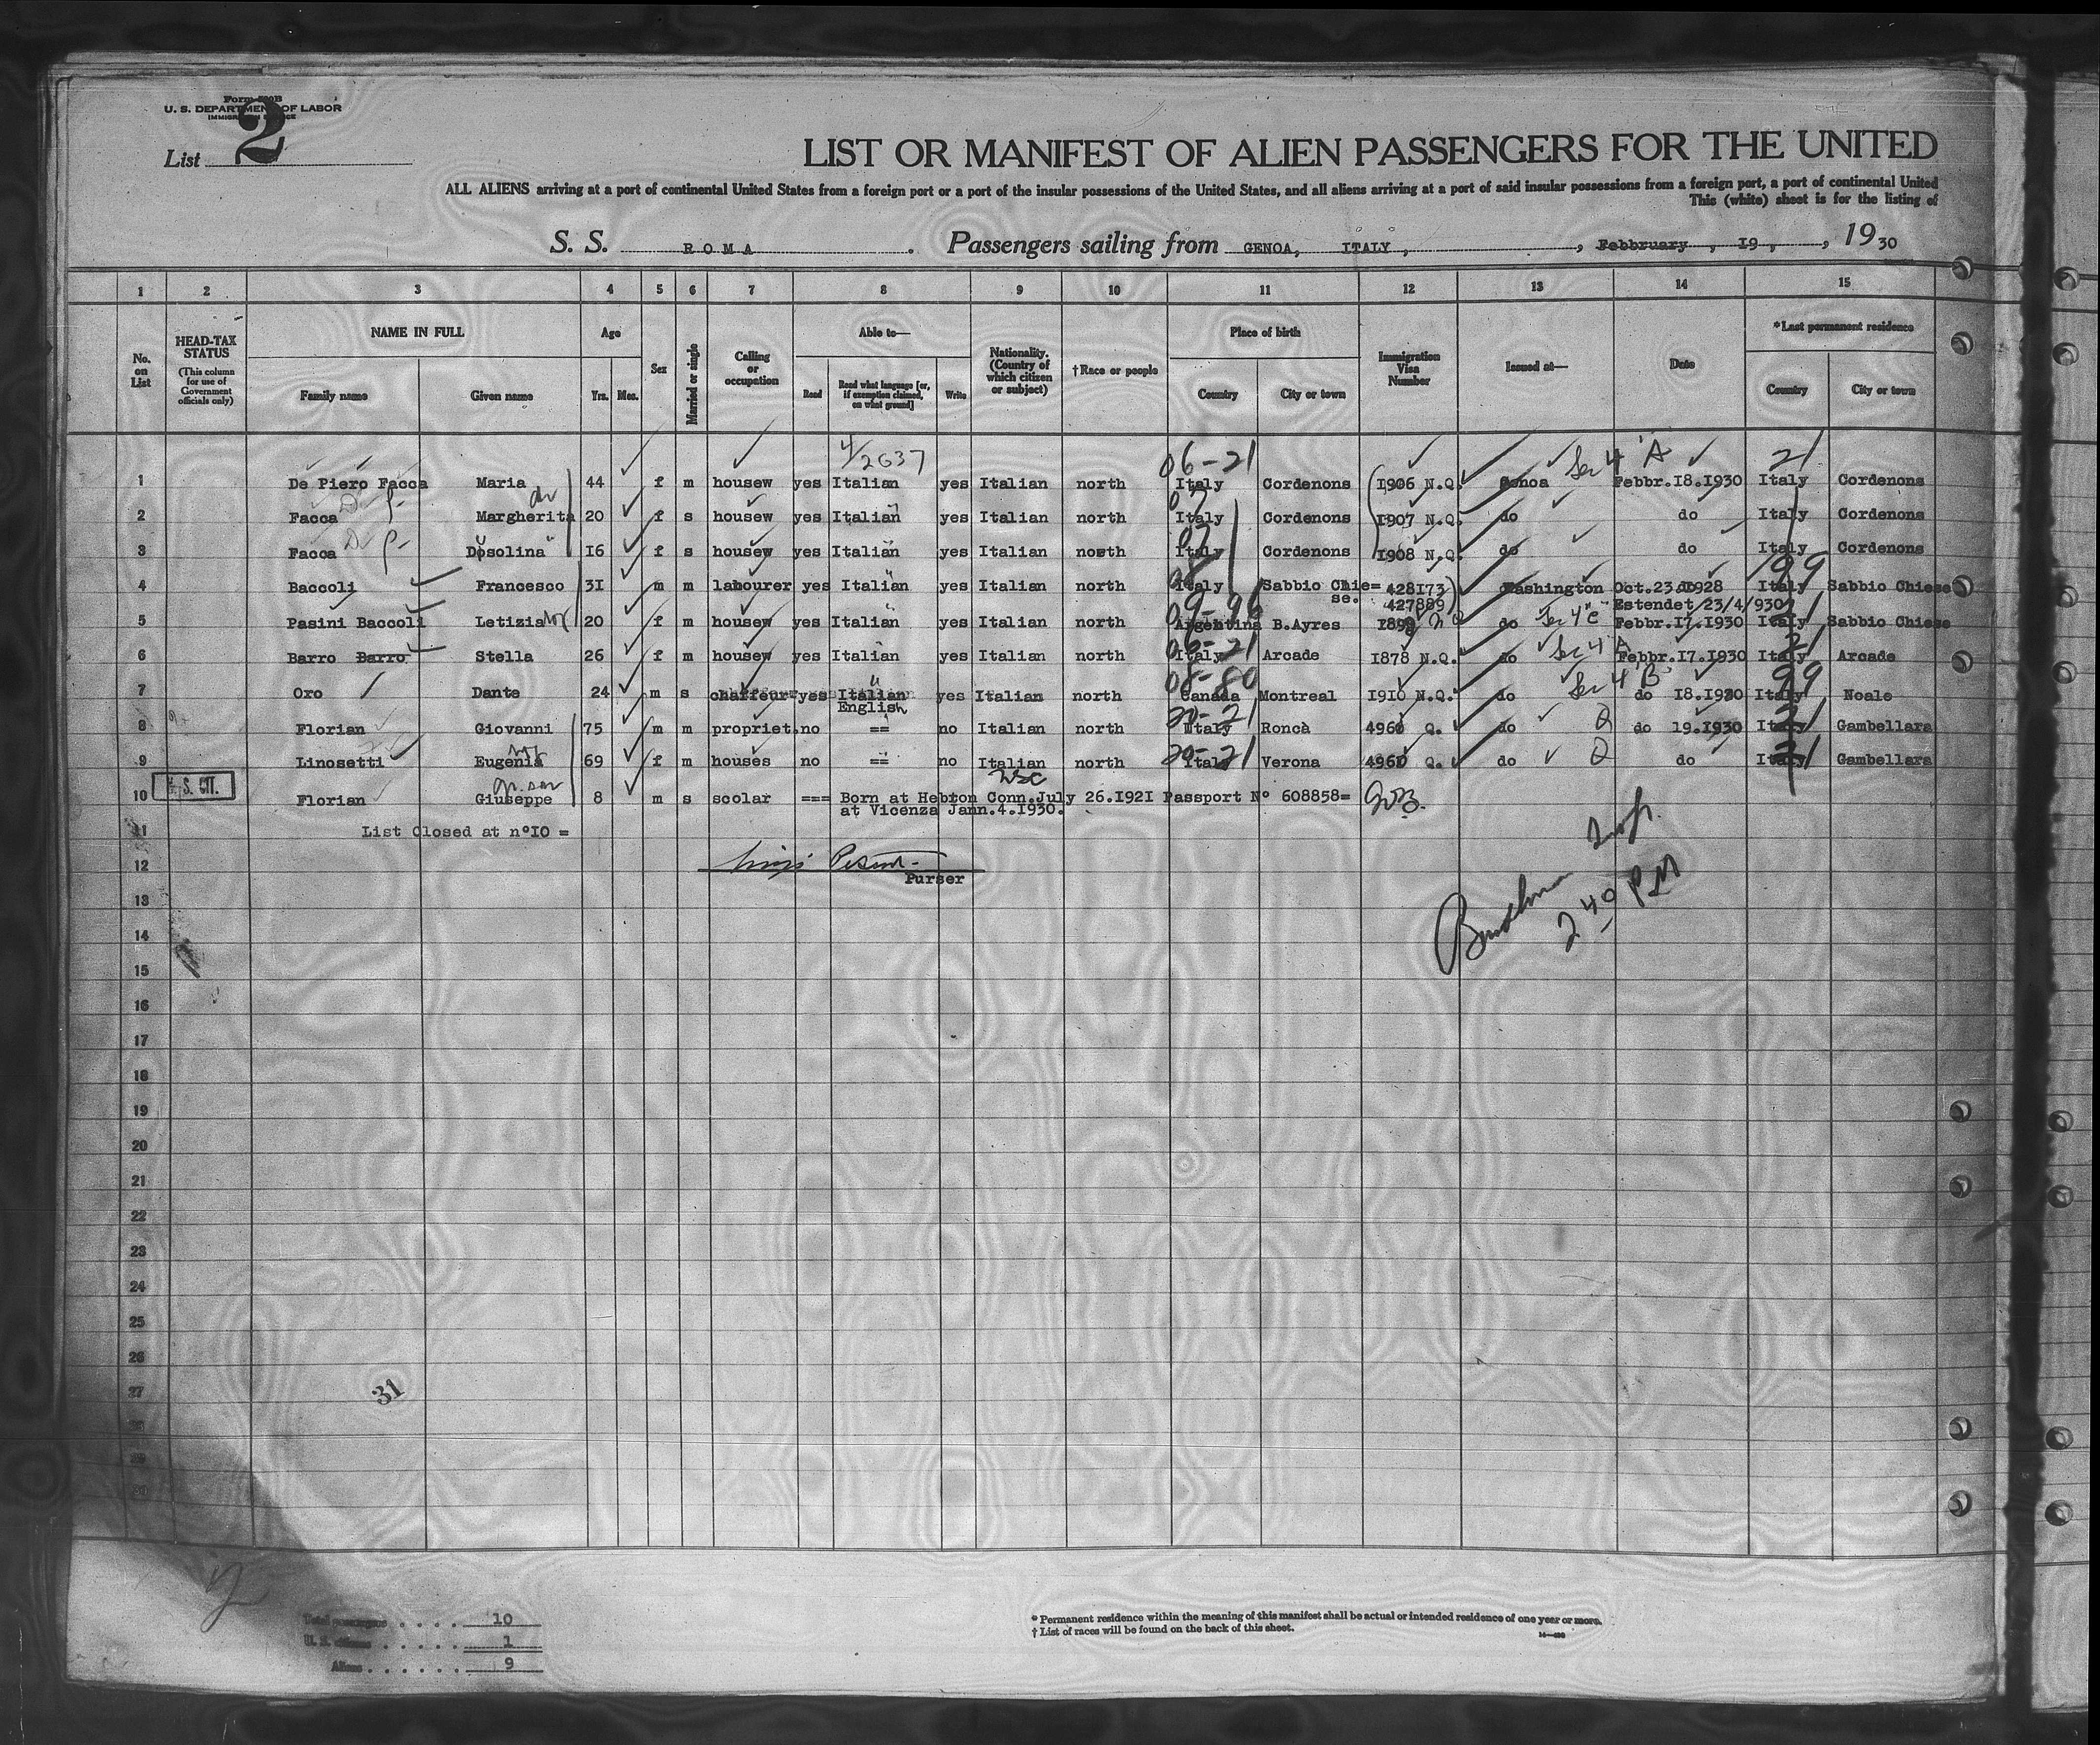 Form 500B
U. S. DEPARTMENT OF LABOR
IMMIGRATION SERVICE
List 2
LIST OR MANIFEST OF ALIEN PASSENGERS FOR THE UNITED
ALL ALIENS arriving at a port of continental United States from a foreign port or a port of the insular possessions of the United States, and all aliens arriving at a port of said insular possessions from a foreign port, a port of continental United
This (white) sheet is for the listing of
S. S. ROMA. Passengers sailing from GENOA, ITALY, , Febbruary , 19 , , 1930
1 2 3 4 5 6 7 8 9 10 11 12 13 14 15
No. on List
HEAD-TAX STATUS (This column for use of Government officials only)
NAME IN FULL Family name Given name
Age Yrs. Mos.
Sex
Married or single
Calling or occupation
Able to— Read Read what language [or, if exemption claimed, on what ground] Write
Nationality. (Country of which citizen or subject)
†Race or people
Place of birth Country City or town
Immigration Visa Number
Issued at—
Date
*Last permanent residence Country City or town
4/2637 06-21 Sec 4 A 21
1 De Piero Facca Maria 44 f m housew yes Italian yes Italian north Italy Cordenons 1906 N.Q. Genoa Febbr.18.1930 Italy Cordenons
2 Facca D. P. Margherita 20 f s housew yes Italian yes Italian north Italy Cordenons 1907 N.Q. do do Italy Cordenons
3 Facca D. P. Dosolina 16 f s housew yes Italian yes Italian north Italy Cordenons 1908 N.Q. do do Italy Cordenons
4 Baccoli Francesco 31 m m labourer yes Italian yes Italian north Italy Sabbio Chie= 428173 Washington Oct.23.1928 Italy 99 Sabbio Chiese
se. 427889 Estendet 23/4/930
5 Pasini Baccoli Letizia 20 f m housew yes Italian yes Italian north Argentina B.Ayres do Sec 4 "c" Febbr.17.1930 Italy Sabbio Chiese
6 Barro Barro Stella 26 f m housew yes Italian yes Italian north Italy 06-21 Arcade 1878 N.Q. do Sec 4 A Febbr.17.1930 Italy 21 Arcade
7 Oro Dante 24 m s chaffeur yes Italian yes Italian north Canada 08-80 Montreal 1910 N.Q. do Sec 4 B do 18.1930 Italy 99 Noale
English
8 Florian Giovanni 75 m m propriet. no == no Italian north Italy 20-21 Roncà Q. do Q do 19.1930 Italy 21 Gambellara
9 Linosetti Eugenia 69 f m houses no == no Italian north Italy 20-21 Verona Q. do Q do Italy 21 Gambellara
10 U.S. CIT. Florian Giuseppe 8 m s scolar === Born at Hebron Conn.July 26.1921 Passport N° 608858=
at Vicenza Jann.4.1930.
11 List Closed at n°10 =
12
Purser
13
2 40 PM
14
15
16
17
18
19
20
21
22
23
24
25
26
27
31
28
29
30
Total passengers . . . . 10
U. S. citizens . . . . . 1
Aliens . . . . . . 9
* Permanent residence within the meaning of this manifest shall be actual or intended residence of one year or more.
† List of races will be found on the back of this sheet.